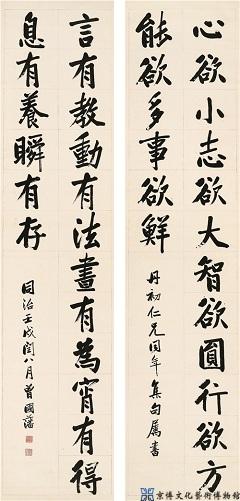 心欲小志欲大智欲圓行欲方
能欲多事欲鮮
丹初仁兄同年集句屬書
言有教動有法晝有為宵有得
息有養瞬有存
同治壬戌閏八月曾國藩
京博文化藝術博物館